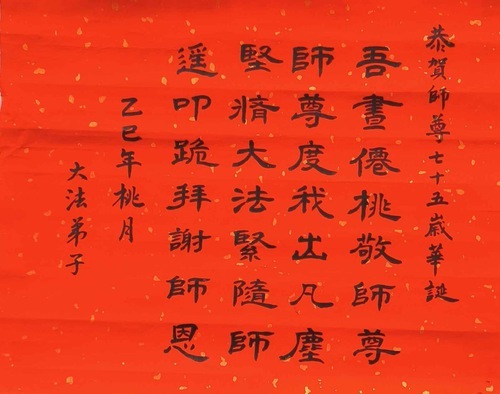 恭賀師尊七十五嵗華誕
吾畫僊桃敬師尊
師尊度我出凡塵
堅脩大法緊隨師
遥叩跪拜謝師恩
乙巳年桃月
大法弟子